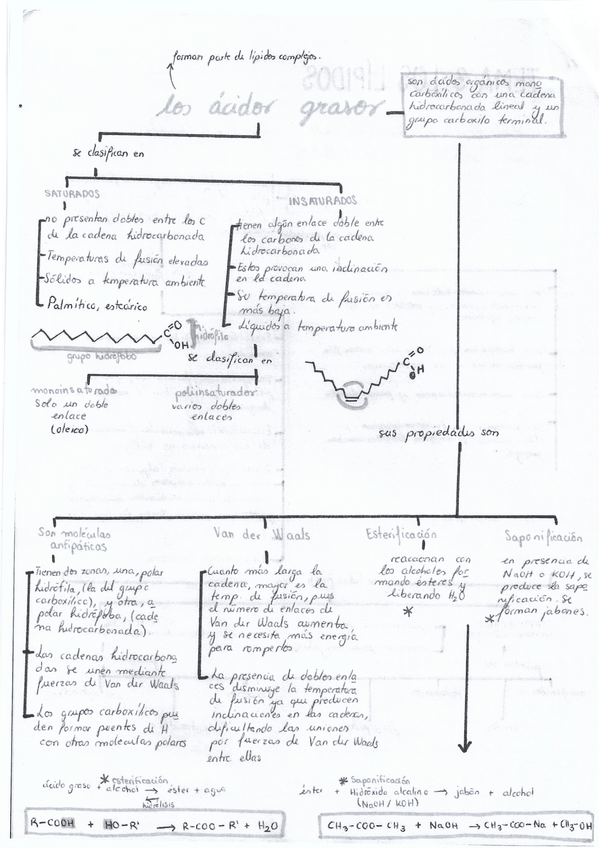 forman parte de lípidos complejos.
los ácidos grasos
son ácidos orgánicos mono
carboxílicos con una cadena
hidrocarbonada lineal y un
grupo carboxilo terminal.
se clasifican en
SATURADOS
no presentan dobles entre los C
de la cadena hidrocarbonada
Temperaturas de fusión elevadas
Sólidos a temperatura ambiente
Palmítico, esteárico
C
O
OH
hidrófila
grupo hidrófobo
INSATURADOS
tienen algún enlace doble entre
los carbonos de la cadena
hidrocarbonada
Estos provocan una inclinación
en la cadena
Su temperatura de fusión es
más baja.
Líquidos a temperatura ambiente
se clasifican en
monoinsaturados
Solo un doble
enlace
(oleico)
poliinsaturados
varios dobles
enlaces
C
O
OH
sus propiedades son
Son moléculas
antipáticas
Tienen dos zonas, una, polar
hidrófila, (la del grupo
carboxílico), y otra, a
polar hidrófoba, (cade
na hidrocarbonada).
Las cadenas hidrocarbona
das se unen mediante
fuerzas de Van der Waals
Los grupos carboxílicos pue
den formar puentes de H
con otras moleculas polares
Van der Waals
Cuanto más larga la
cadena, mayor es la
temp. de fusión, pues
el número de enlaces de
Van der Waals aumenta
y se necesita más energía
para romperlos.
La presencia de dobles enla
ces disminuye la temperatura
de fusión ya que producen
inclinaciones en las cadenas,
dificultando las uniones
por fuerzas de Van der Waals
entre ellas
Esterificación
reaccionan con
los alcoholes for
mando ésteres y
liberando H₂O
*
Saponificación
en presencia de
NaOH o KOH, se
produce la sapo
nificación. Se
* forman jabones.
* esterificación
ácido graso + alcohol → éster + agua
hidrólisis
R-COOH + HO-R' → R-COO-R' + H₂O
* Saponificación
éster + Hidróxido alcalino → jabón + alcohol
(NaOH / KOH)
CH₃-COO-CH₃ + NaOH → CH₃-COO-Na + CH₃-OH